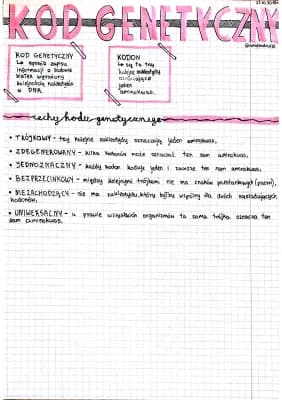 KOD GENETYCZNY
KOD GENETYCZNY
↳ sposób zapisu
informacji o budowie
białek wyrażony
kolejnością nukleotydów
w DNA.
KODON
↳ są to trzy
kolejne nukleotydy
oznaczające
jeden
aminokwas.
cechy kodu genetycznego
• TRÓJKOWY - trzy kolejne nukleotydy oznaczają jeden aminokwas,
• ZDEGENEROWANY - kilka kodonów może oznaczać ten sam aminokwas,
• JEDNOZNACZNY - każdy kodon koduje jeden i zawsze ten sam aminokwas,
• BEZPRZECINKOWY - między kolejnymi trójkami nie ma znaków przestankowych (pauz),
• NIEZACHODZĄCY - nie ma nukleotydu, który byłby wspólny dla dwóch sąsiadujących
kodonów,
• UNIWERSALNY - u prawie wszystkich organizmów ta sama trójka oznacza ten
sam aminokwas.